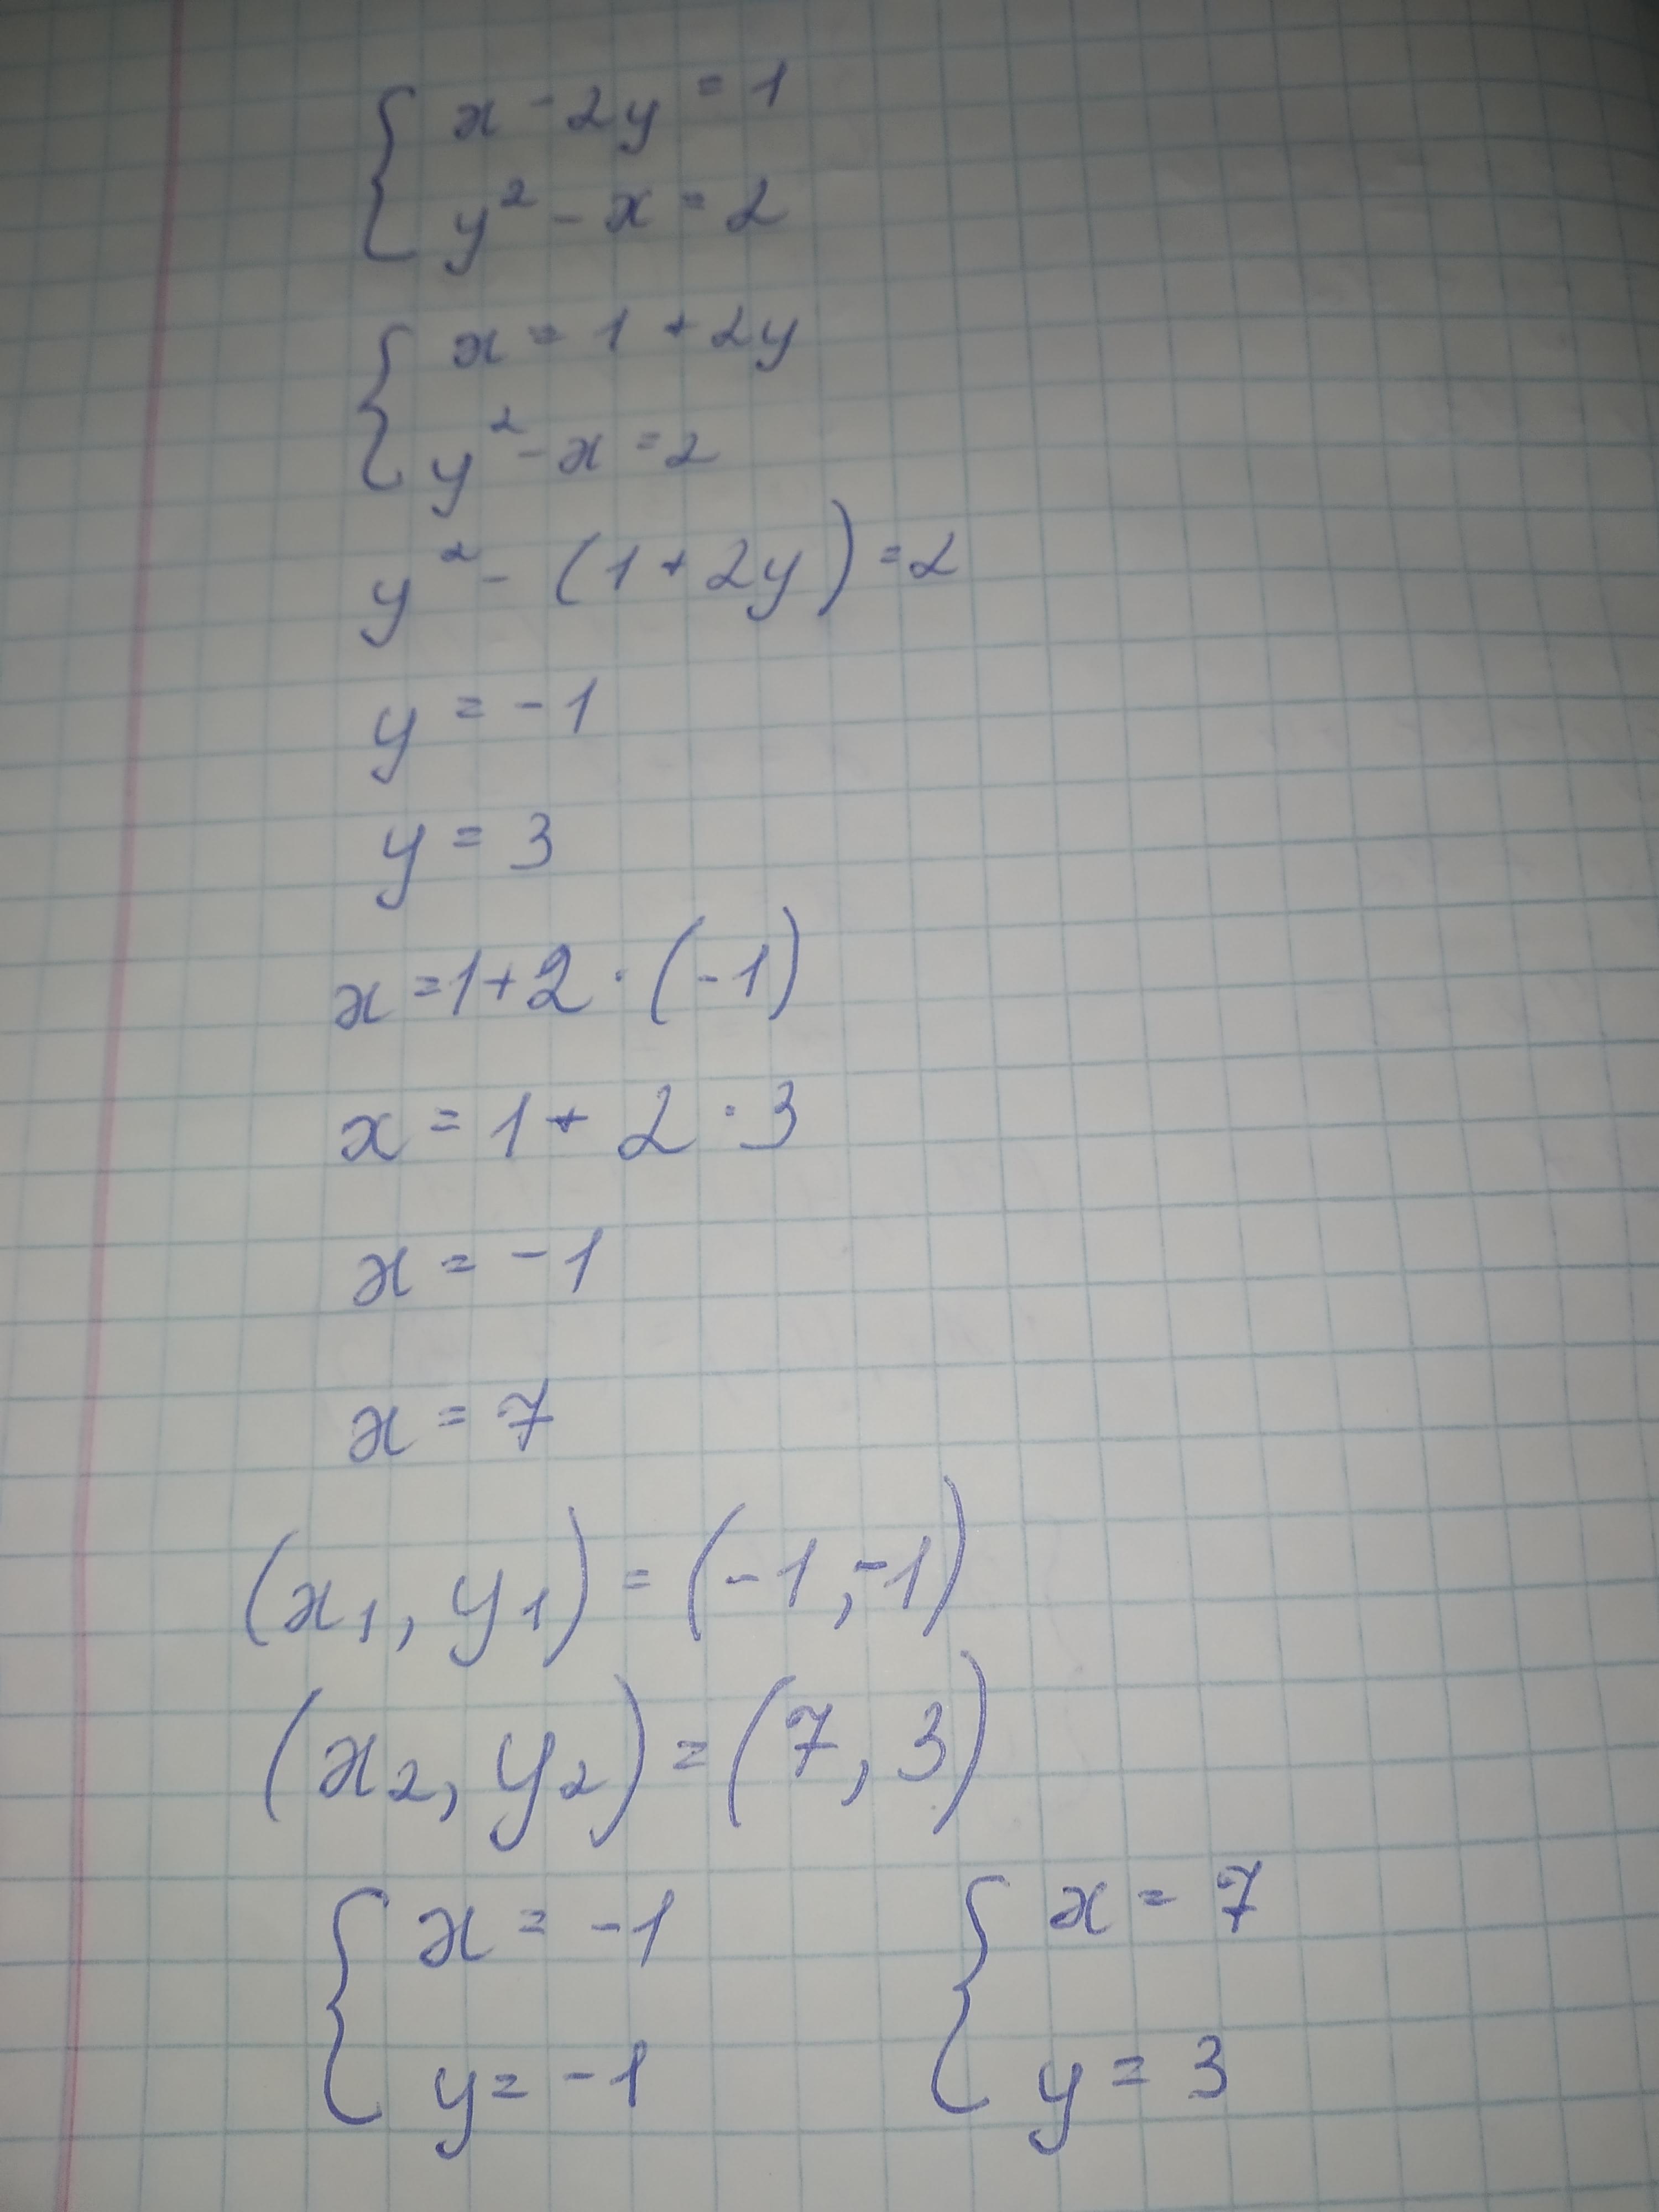 { x - 2y = 1
y² - x = 2
{ x = 1 + 2y
y² - x = 2
y² - (1 + 2y) = 2
y = -1
y = 3
x = 1 + 2 · (-1)
x = 1 + 2 · 3
x = -1
x = 7
(x₁, y₁) = (-1, -1)
(x₂, y₂) = (7, 3)
{ x = -1 { x = 7
y = -1 y = 3